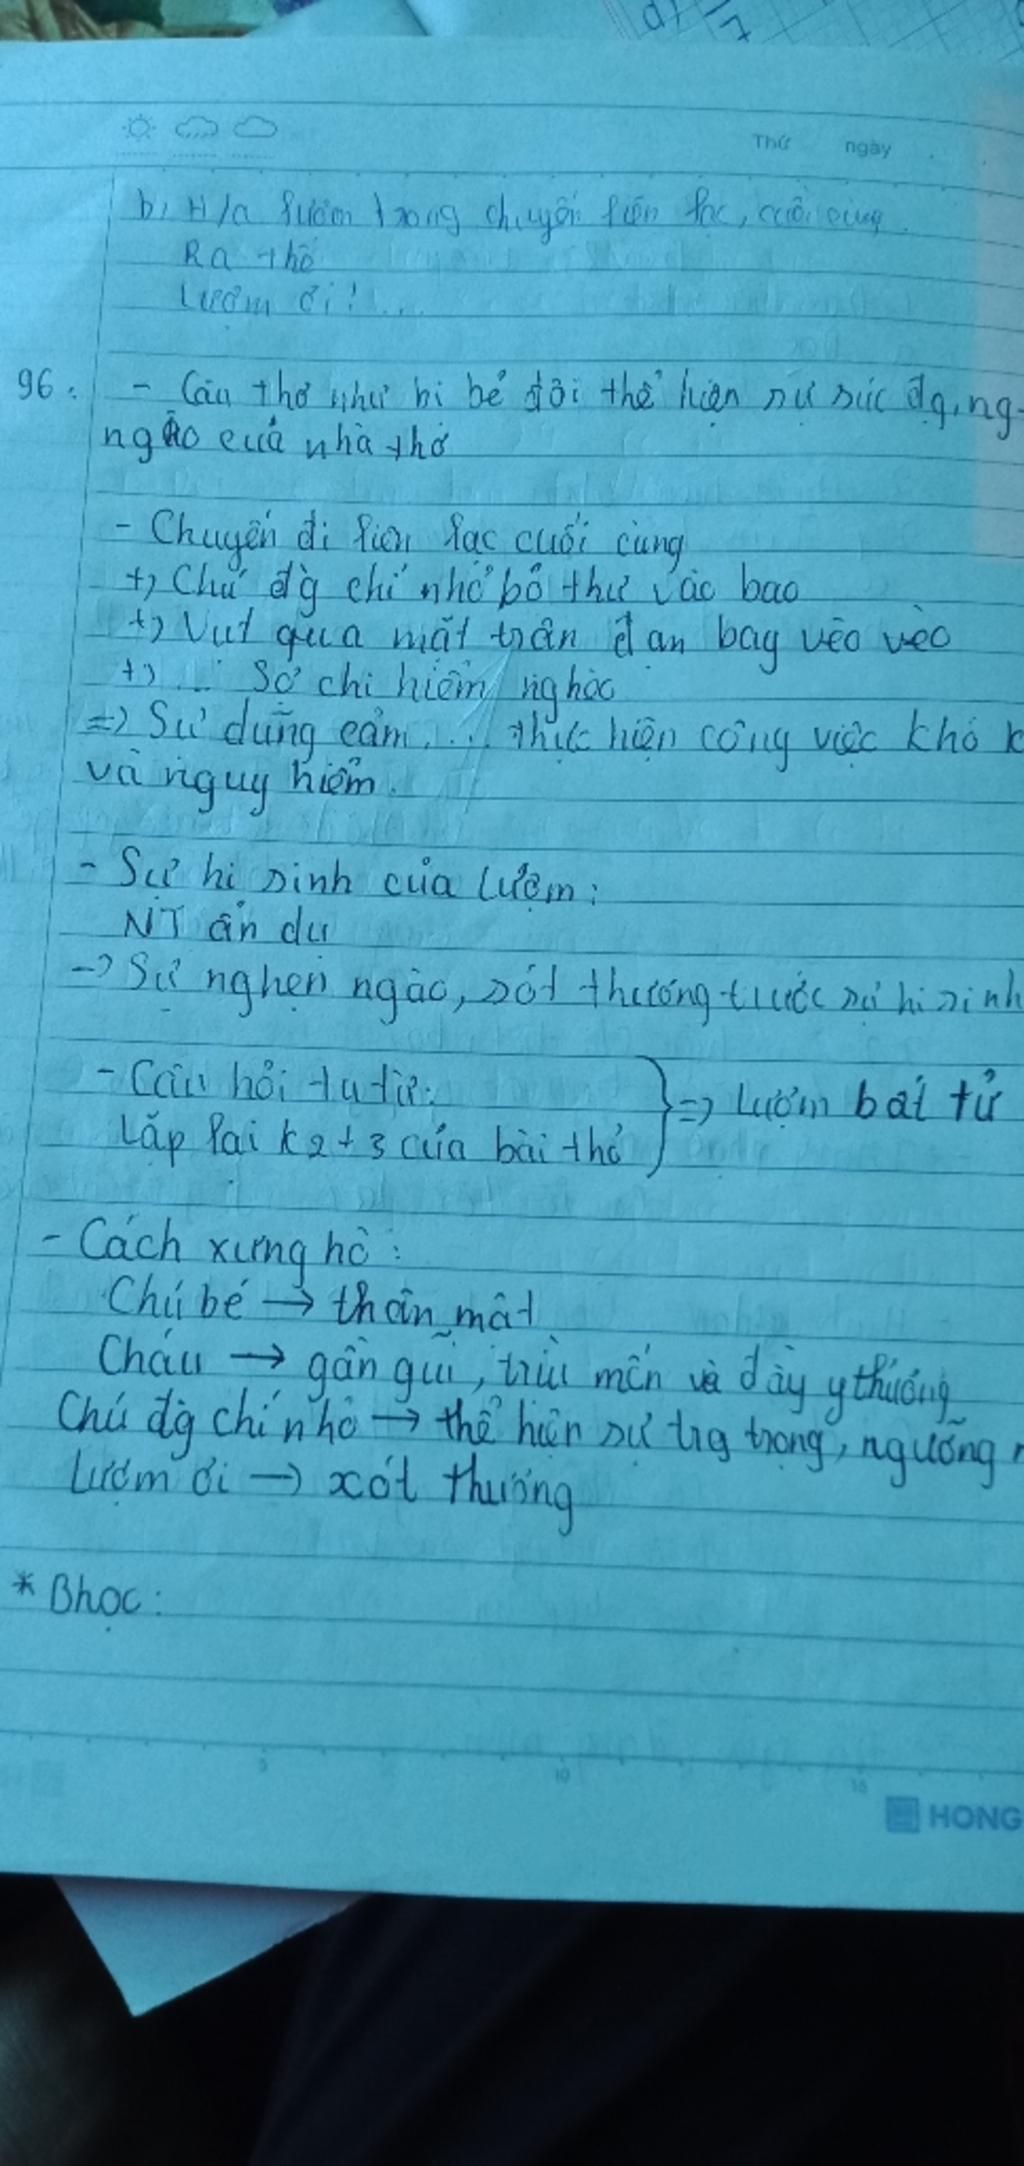 d)
7
Thứ ngày
b, H/a Lượm trong chuyến liên lạc, cuối cùng.
Ra thế
Lượm ơi!...
96. - Câu thơ như bị bẻ đôi thể hiện sự xúc đg, ng-
ngào của nhà thơ
- Chuyến đi liên lạc cuối cùng
+) Chú đg chí nhỏ bỏ thư vào bao
+) Vụt qua mặt trận đạn bay vèo vèo
+) ... Sợ chi hiểm nghèo
=> Sự dũng cảm... thực hiện công việc khó k
và nguy hiểm.
- Sự hi sinh của Lượm:
NT ẩn dụ
-> Sự nghẹn ngào, sót thương trước sự hi sinh
- Câu hỏi tu từ:
Lặp lại k2+3 của bài thơ } => Lượm bất tử
- Cách xưng hô:
Chú bé -> thân mật
Cháu -> gần gũi, trìu mến và đầy y thương
Chú đg chí nhỏ -> thể hiện sự trg trọng, ngưỡng
Lượm ơi -> xót thương
* Bhọc:
5 10 15
HONG